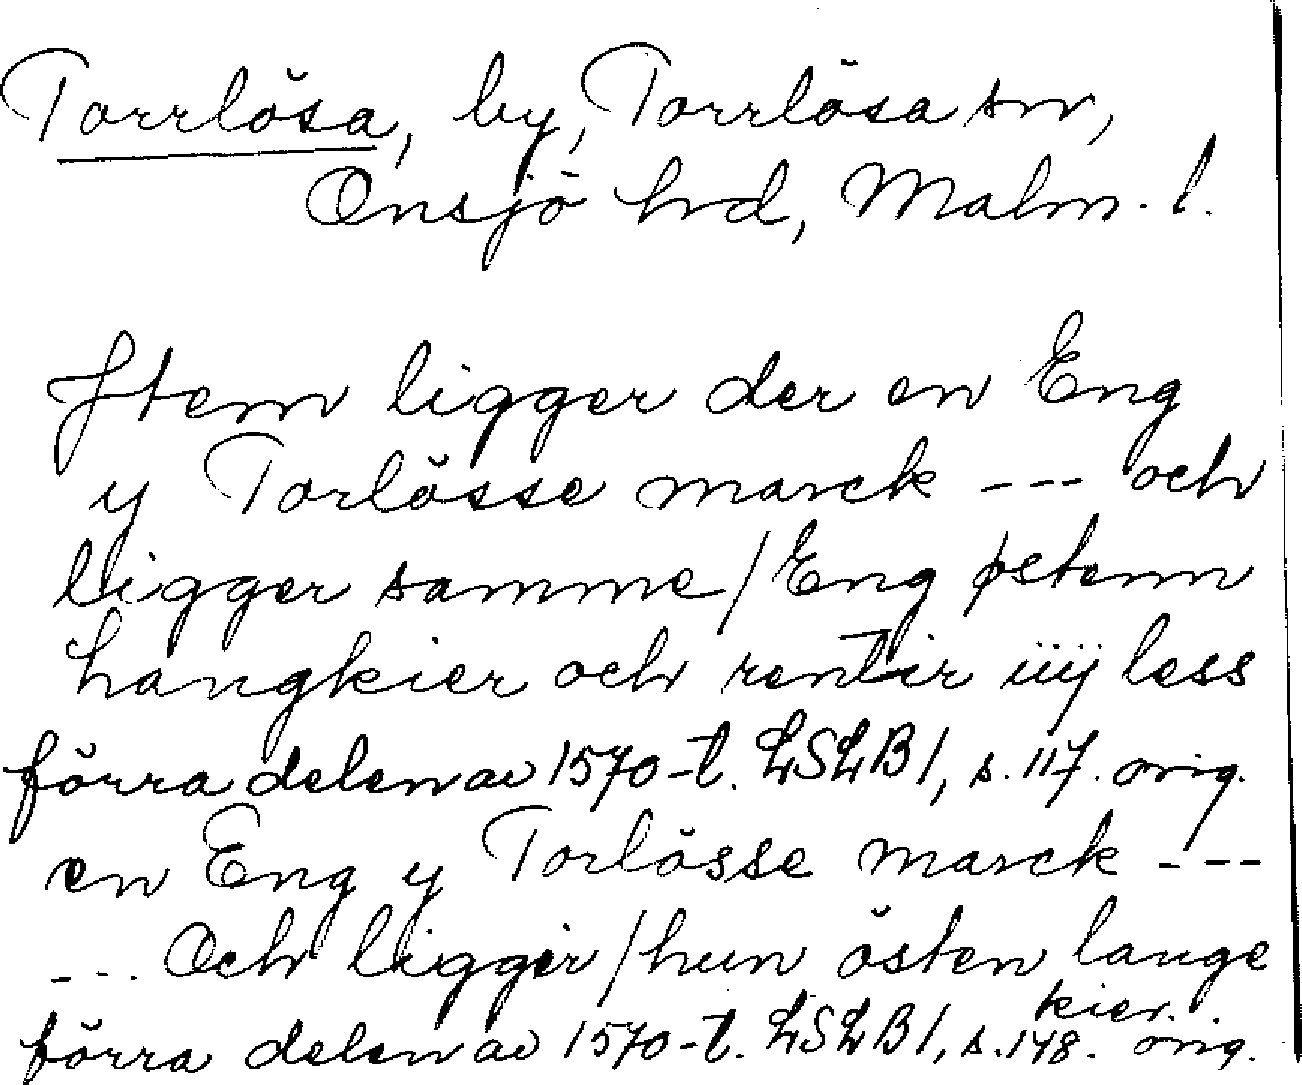 Torrlösa, by, Torrlösa sn,
Onsjö hd, Malm. l.
Item ligger der en Eng
y Torlösse marck --- och
ligger samme/Eng østenn
hangkier och rentir iiij less
förra delen av 1570-t. LSLB 1, s. 117. orig.
en Eng y Torlösse marck ---
--- Och ligger/hun östen lange
kier.
förra delen av 1570-t. LSLB 1, s. 148. orig.